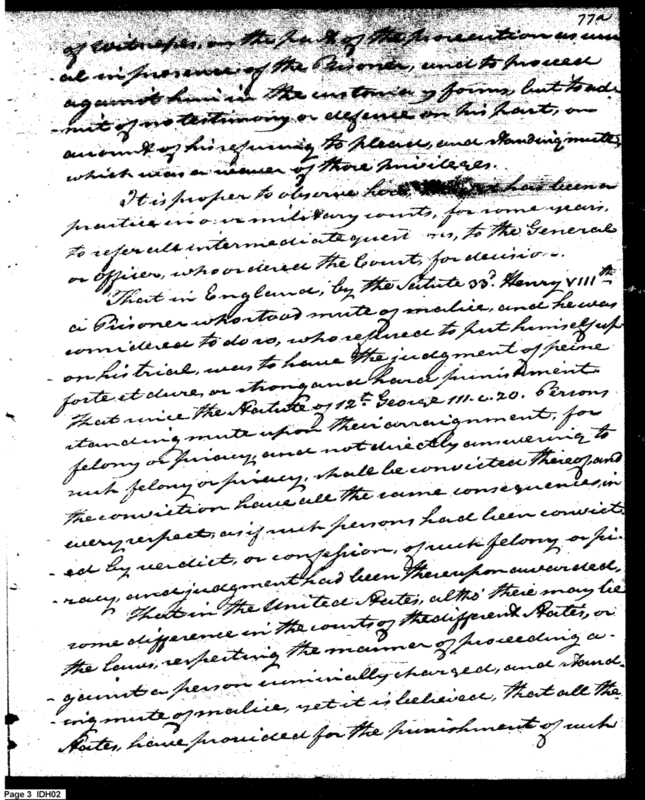 77a
of witnesses, on the part of the prosecution as usu
-al in presence of the Prisoner, and to proceed
against him in the customary forms, but to ad-
-mit of no testimony or defense on his part, on
account of his refusing to plead, and standing mute,
which was a waver of those privileges.
It is proper to observe here, has been a
practice in our military courts, for some years,
to refer all intermediate quest ns, to the General
or Officer, who ordered the Court, for decision.
That in England, by the Statute 33d. Henry VIIIth
a Prisoner who stood mute of malice, and he was
considered to do so, who refused to put himself up
on his trial, was to have the judgment of peine
forte et dure, or strong and hard punishment
That since the Statute of 12th. George III. c. 20. Persons
standing mute upon their arraignment, for
felony or piracy, and not directly answering to
such felony or piracy, shall be convicted thereof and
the conviction have all the same consequences, in
every respect, as if such persons had been convict
-ed by verdict, or confession, of such felony or pi-
-racy, and judgment had been thereupon awarded.
That in the United States, altho' there may be
some difference in the courts of the different States, or
the laws, respecting the manner of proceeding a-
-gainst a person criminally charged, and stand-
-ing mute of malice, yet it is believed, that all the
States, have provided for the punishment of such
Page 3 IDH02